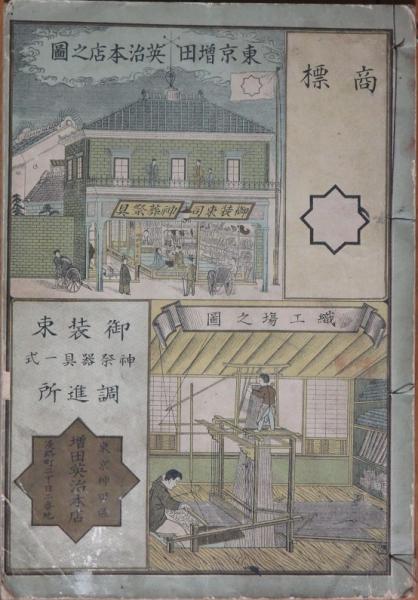 東京増田英治本店之圖
商標
御装束司 神葬祭具
織工場之圖
御装束
神祭器具一式
調進所
東京神田區
増田英治本店
淡路町二丁目二番地